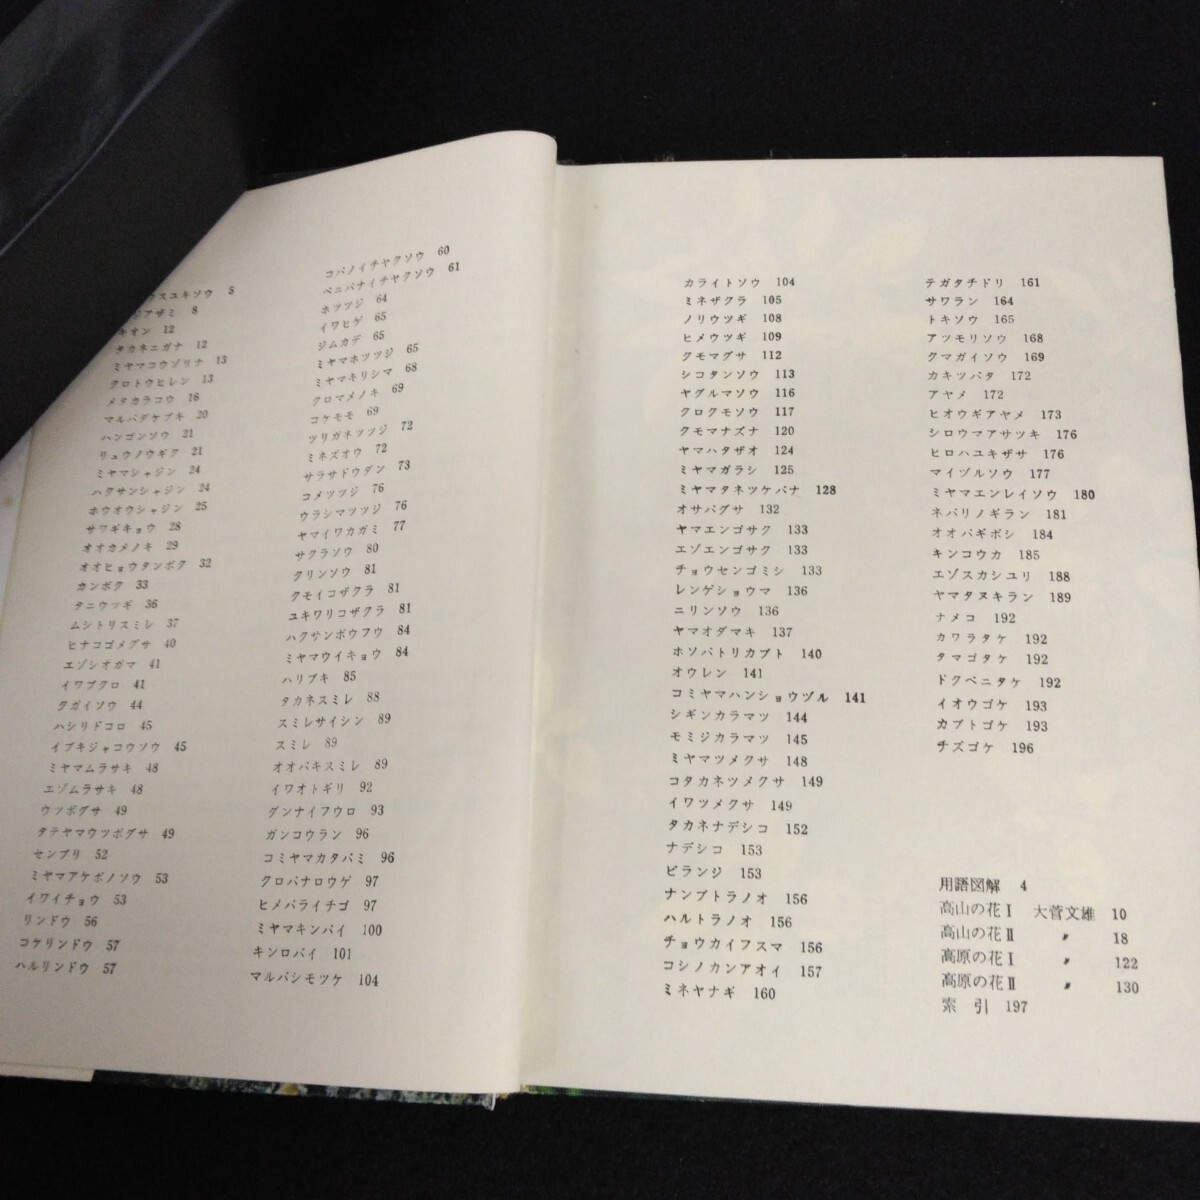 スユキソウ 5
アザミ 8
キオン 12
タカネニガナ 12
ミヤマコウゾリナ 13
クロトウヒレン 13
メタカラコウ 16
マルバダケブキ 20
ハンゴンソウ 21
リュウノウギク 21
ミヤマシャジン 24
ハクサンシャジン 24
ホウオウシャジン 25
サワギキョウ 28
オオカメノキ 29
オオヒョウタンボク 32
カンボク 33
タニウツギ 36
ムシトリスミレ 37
ヒナコゴメグサ 40
エゾシオガマ 41
イワブクロ 41
クガイソウ 44
ハシリドコロ 45
イブキジャコウソウ 45
ミヤマムラサキ 48
エゾムラサキ 48
ウツボグサ 49
タテヤマウツボグサ 49
センブリ 52
ミヤマアケボノソウ 53
イワイチョウ 53
リンドウ 56
コケリンドウ 57
ハルリンドウ 57
コバノイチヤクソウ 60
ベニバナイチヤクソウ 61
ホツツジ 64
イワヒゲ 65
ジムカデ 65
ミヤマホツツジ 65
ミヤマキリシマ 68
クロマメノキ 69
コケモモ 69
ツリガネツツジ 72
ミネズオウ 72
サラサドウダン 73
コメツツジ 76
ウラシマツツジ 76
ヤマイワカガミ 77
サクラソウ 80
クリンソウ 81
クモイコザクラ 81
ユキワリコザクラ 81
ハクサンボウフウ 84
ミヤマウイキョウ 84
ハリブキ 85
タカネスミレ 88
スミレサイシン 89
スミレ 89
オオバキスミレ 89
イワオトギリ 92
グンナイフウロ 93
ガンコウラン 96
コミヤマカタバミ 96
クロバナロウゲ 97
ヒメバライチゴ 97
ミヤマキンバイ 100
キンロバイ 101
マルバシモツケ 104
カライトソウ 104
ミネザクラ 105
ノリウツギ 108
ヒメウツギ 109
クモマグサ 112
シコタンソウ 113
ヤグルマソウ 116
クロクモソウ 117
クモマナズナ 120
ヤマハタザオ 124
ミヤマガラシ 125
ミヤマタネツケバナ 128
オサバグサ 132
ヤマエンゴサク 133
エゾエンゴサク 133
チョウセンゴミシ 133
レンゲショウマ 136
ニリンソウ 136
ヤマオダマキ 137
ホソバトリカブト 140
オウレン 141
コミヤマハンショウヅル 141
シギンカラマツ 144
モミジカラマツ 145
ミヤマツメクサ 148
コタカネツメクサ 149
イワツメクサ 149
タカネナデシコ 152
ナデシコ 153
ビランジ 153
ナンブトラノオ 156
ハルトラノオ 156
チョウカイフスマ 156
コシノカンアオイ 157
ミネヤナギ 160
テガタチドリ 161
サワラン 164
トキソウ 165
アツモリソウ 168
クマガイソウ 169
カキツバタ 172
アヤメ 172
ヒオウギアヤメ 173
シロウマアサツキ 176
ヒロハユキザサ 176
マイヅルソウ 177
ミヤマエンレイソウ 180
ネバリノギラン 181
オオバギボシ 184
キンコウカ 185
エゾスカシユリ 188
ヤマタヌキラン 189
ナメコ 192
カワラタケ 192
タマゴタケ 192
ドクベニタケ 192
イオウゴケ 193
カブトゴケ 193
チズゴケ 196
用語図解 4
高山の花Ⅰ 大菅文雄 10
高山の花Ⅱ 〃 18
高原の花Ⅰ 〃 122
高原の花Ⅱ 〃 130
索引 197